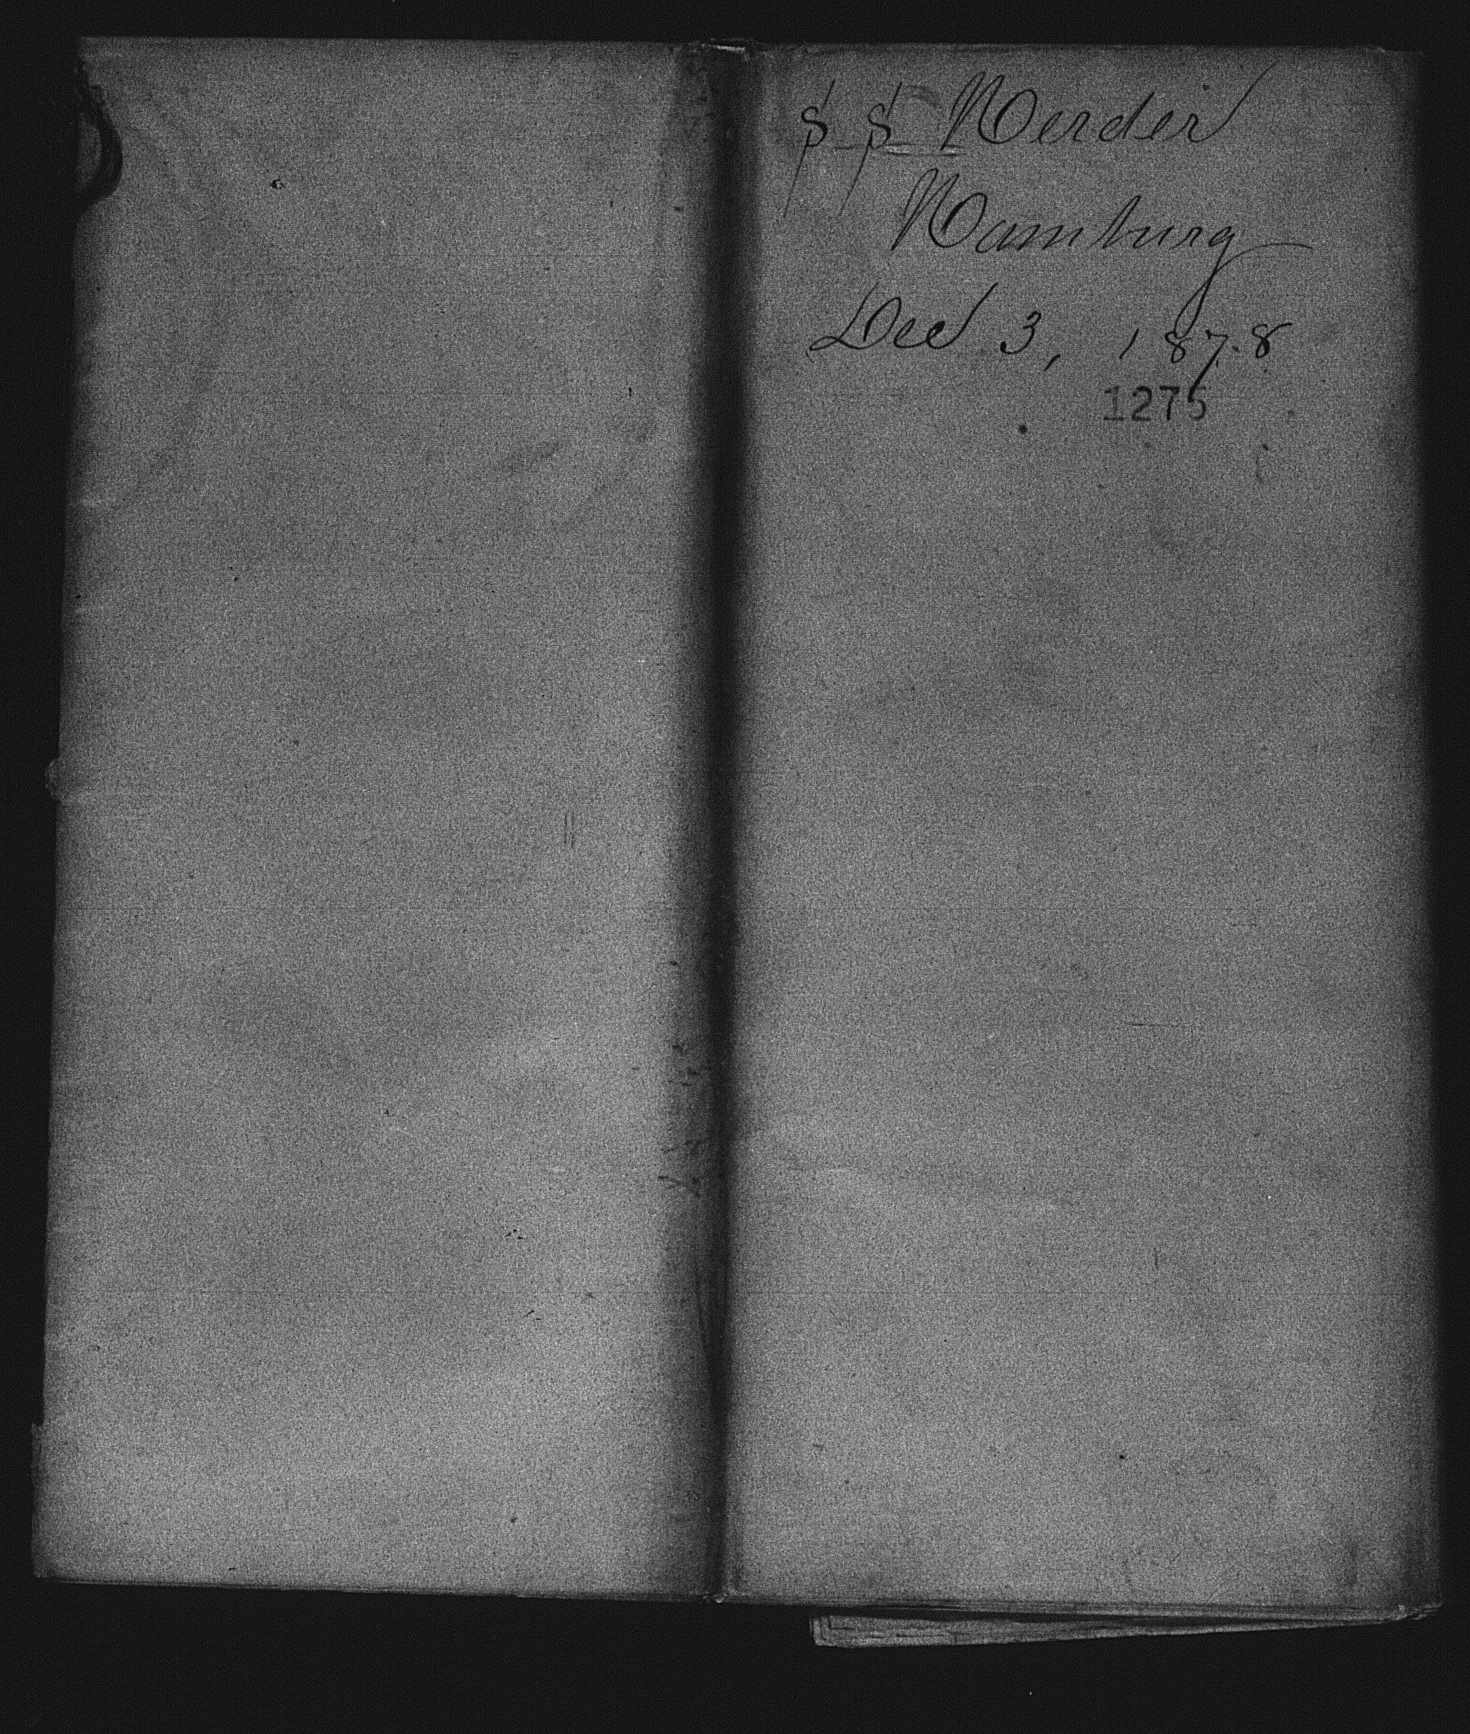 SS Herder
Hamburg
Dec 3, 1878
1275